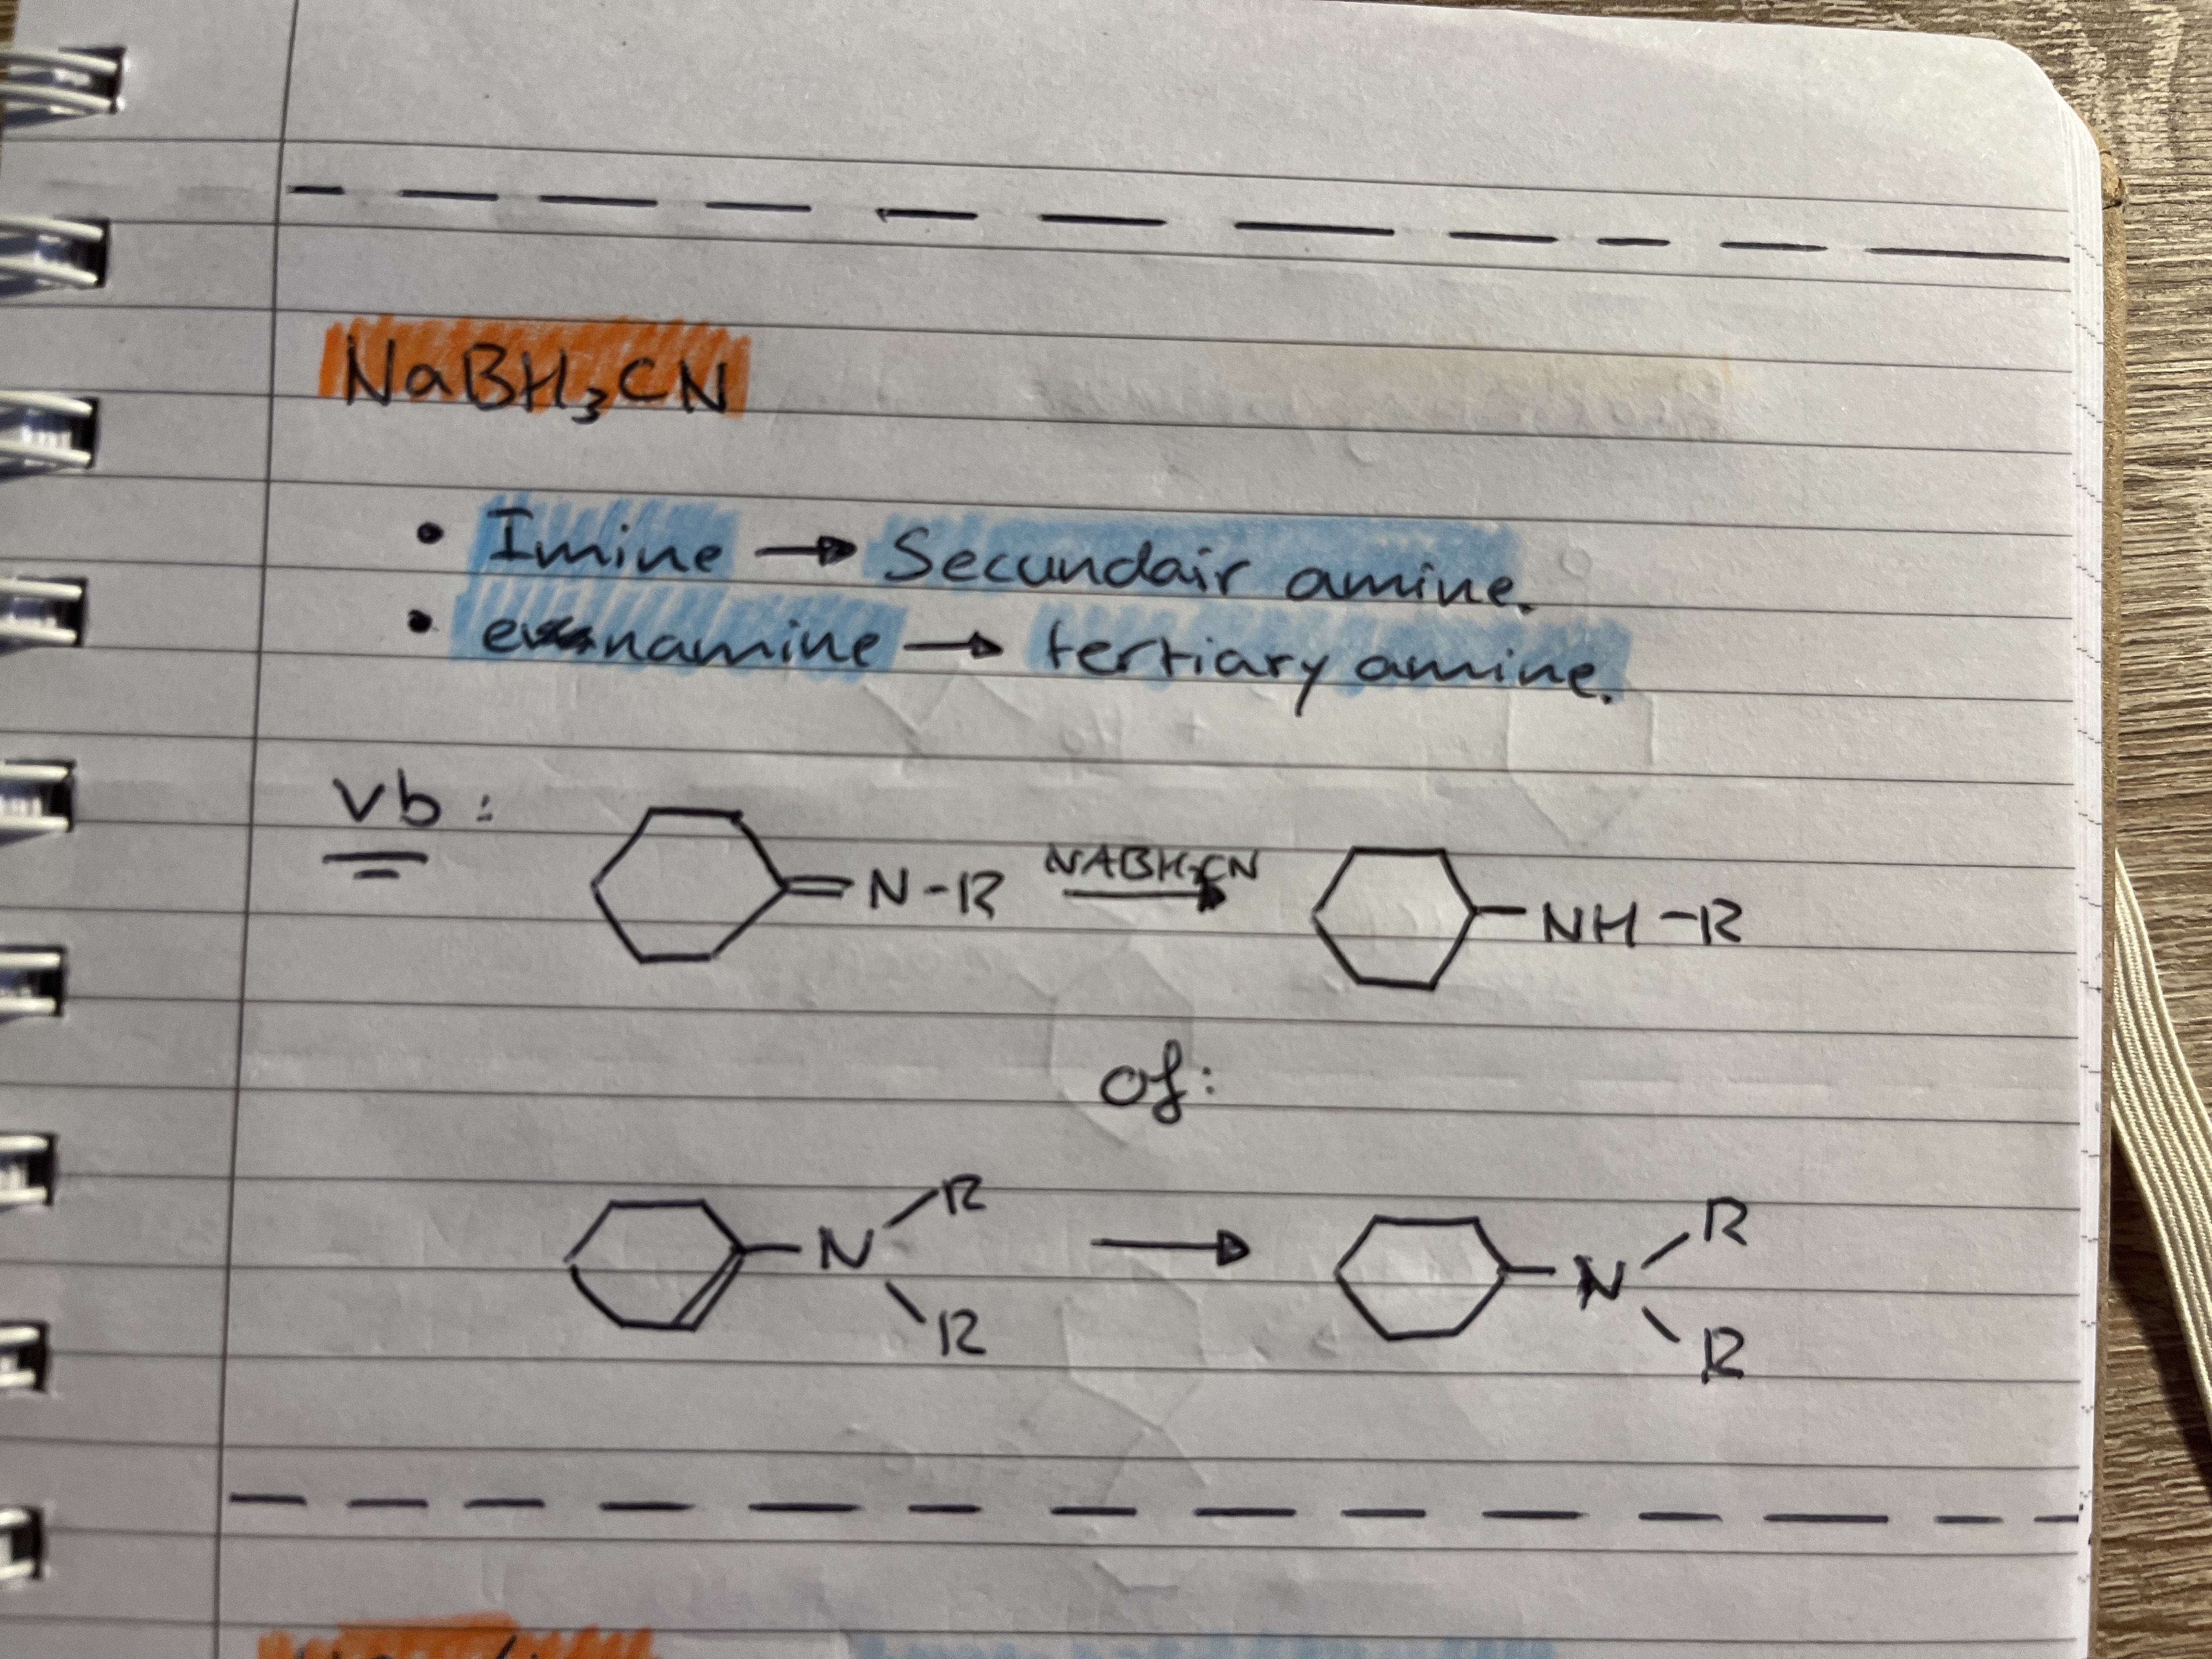 NaBH₃CN
• Imine → Secundair amine.
• enamine → tertiary amine.
Vb:
=N-R NABH₃CN → -NH-R
Of:
R R
-N → -N
R R